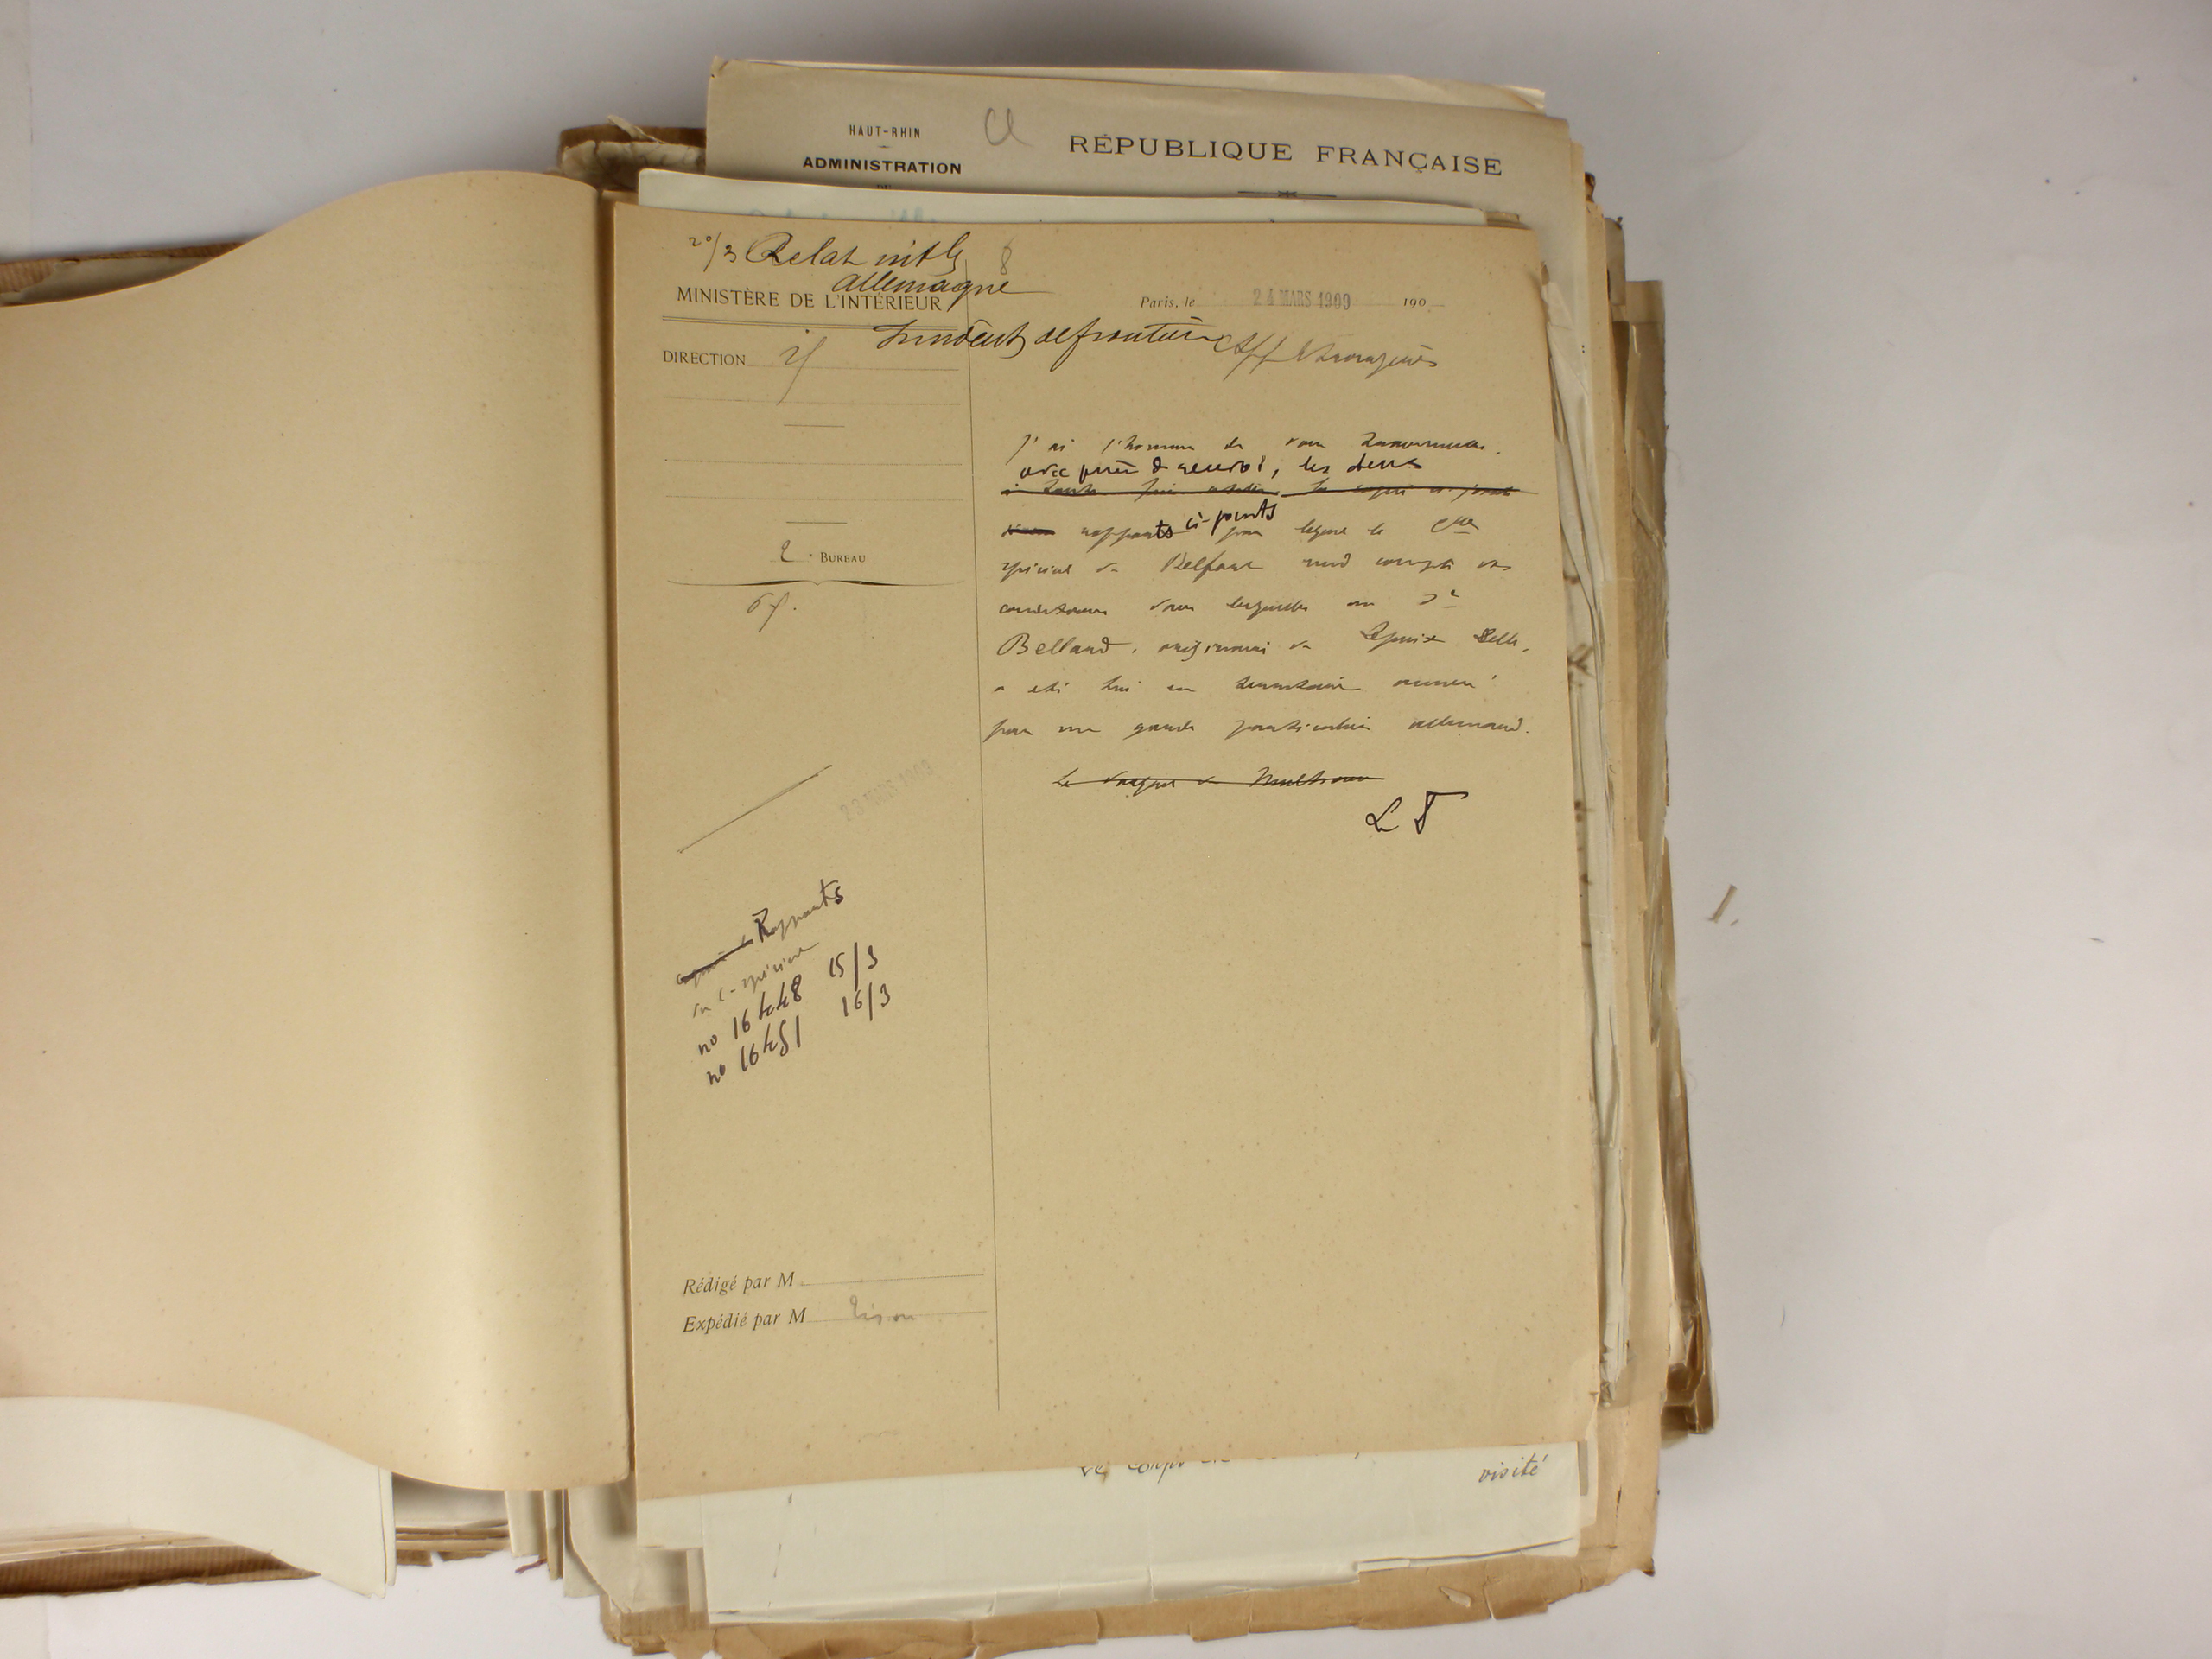 HAUT-RHIN
ADMINISTRATION
RÉPUBLIQUE FRANÇAISE
20/3 Relat intles 8
allemagne
MINISTÈRE DE L'INTÉRIEUR
Paris, le 24 MARS 1909 190
Incidents de frontière Aff Etrangères
DIRECTION
J'ai l'honneur de vous transmettre,
avec prière de renvoi, les deux
la copie ci-jointe
rapports ci-joints par lequel le Cre
spécial de Belfort rend compte des
conditions dans lesquelles un Sr
Belland, originaire de Lepuix Delle,
a été tué en territoire annexé
par un garde particulier allemand.
Le Parquet de Mulhouse
L T
2e BUREAU
23 MARS 1909
Rapports
du C. spécial
no 16448 15/3
no 16451 16/3
Rédigé par M
Expédié par M
visité